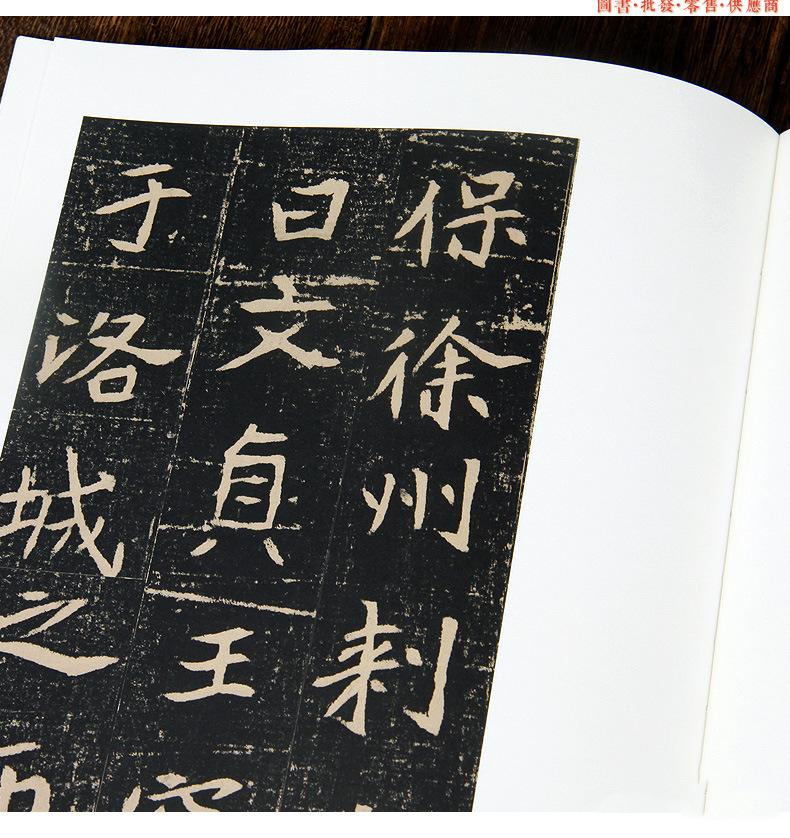 圖書·批發·零售·供應商
保徐州刺
曰文貞王
于洛城之